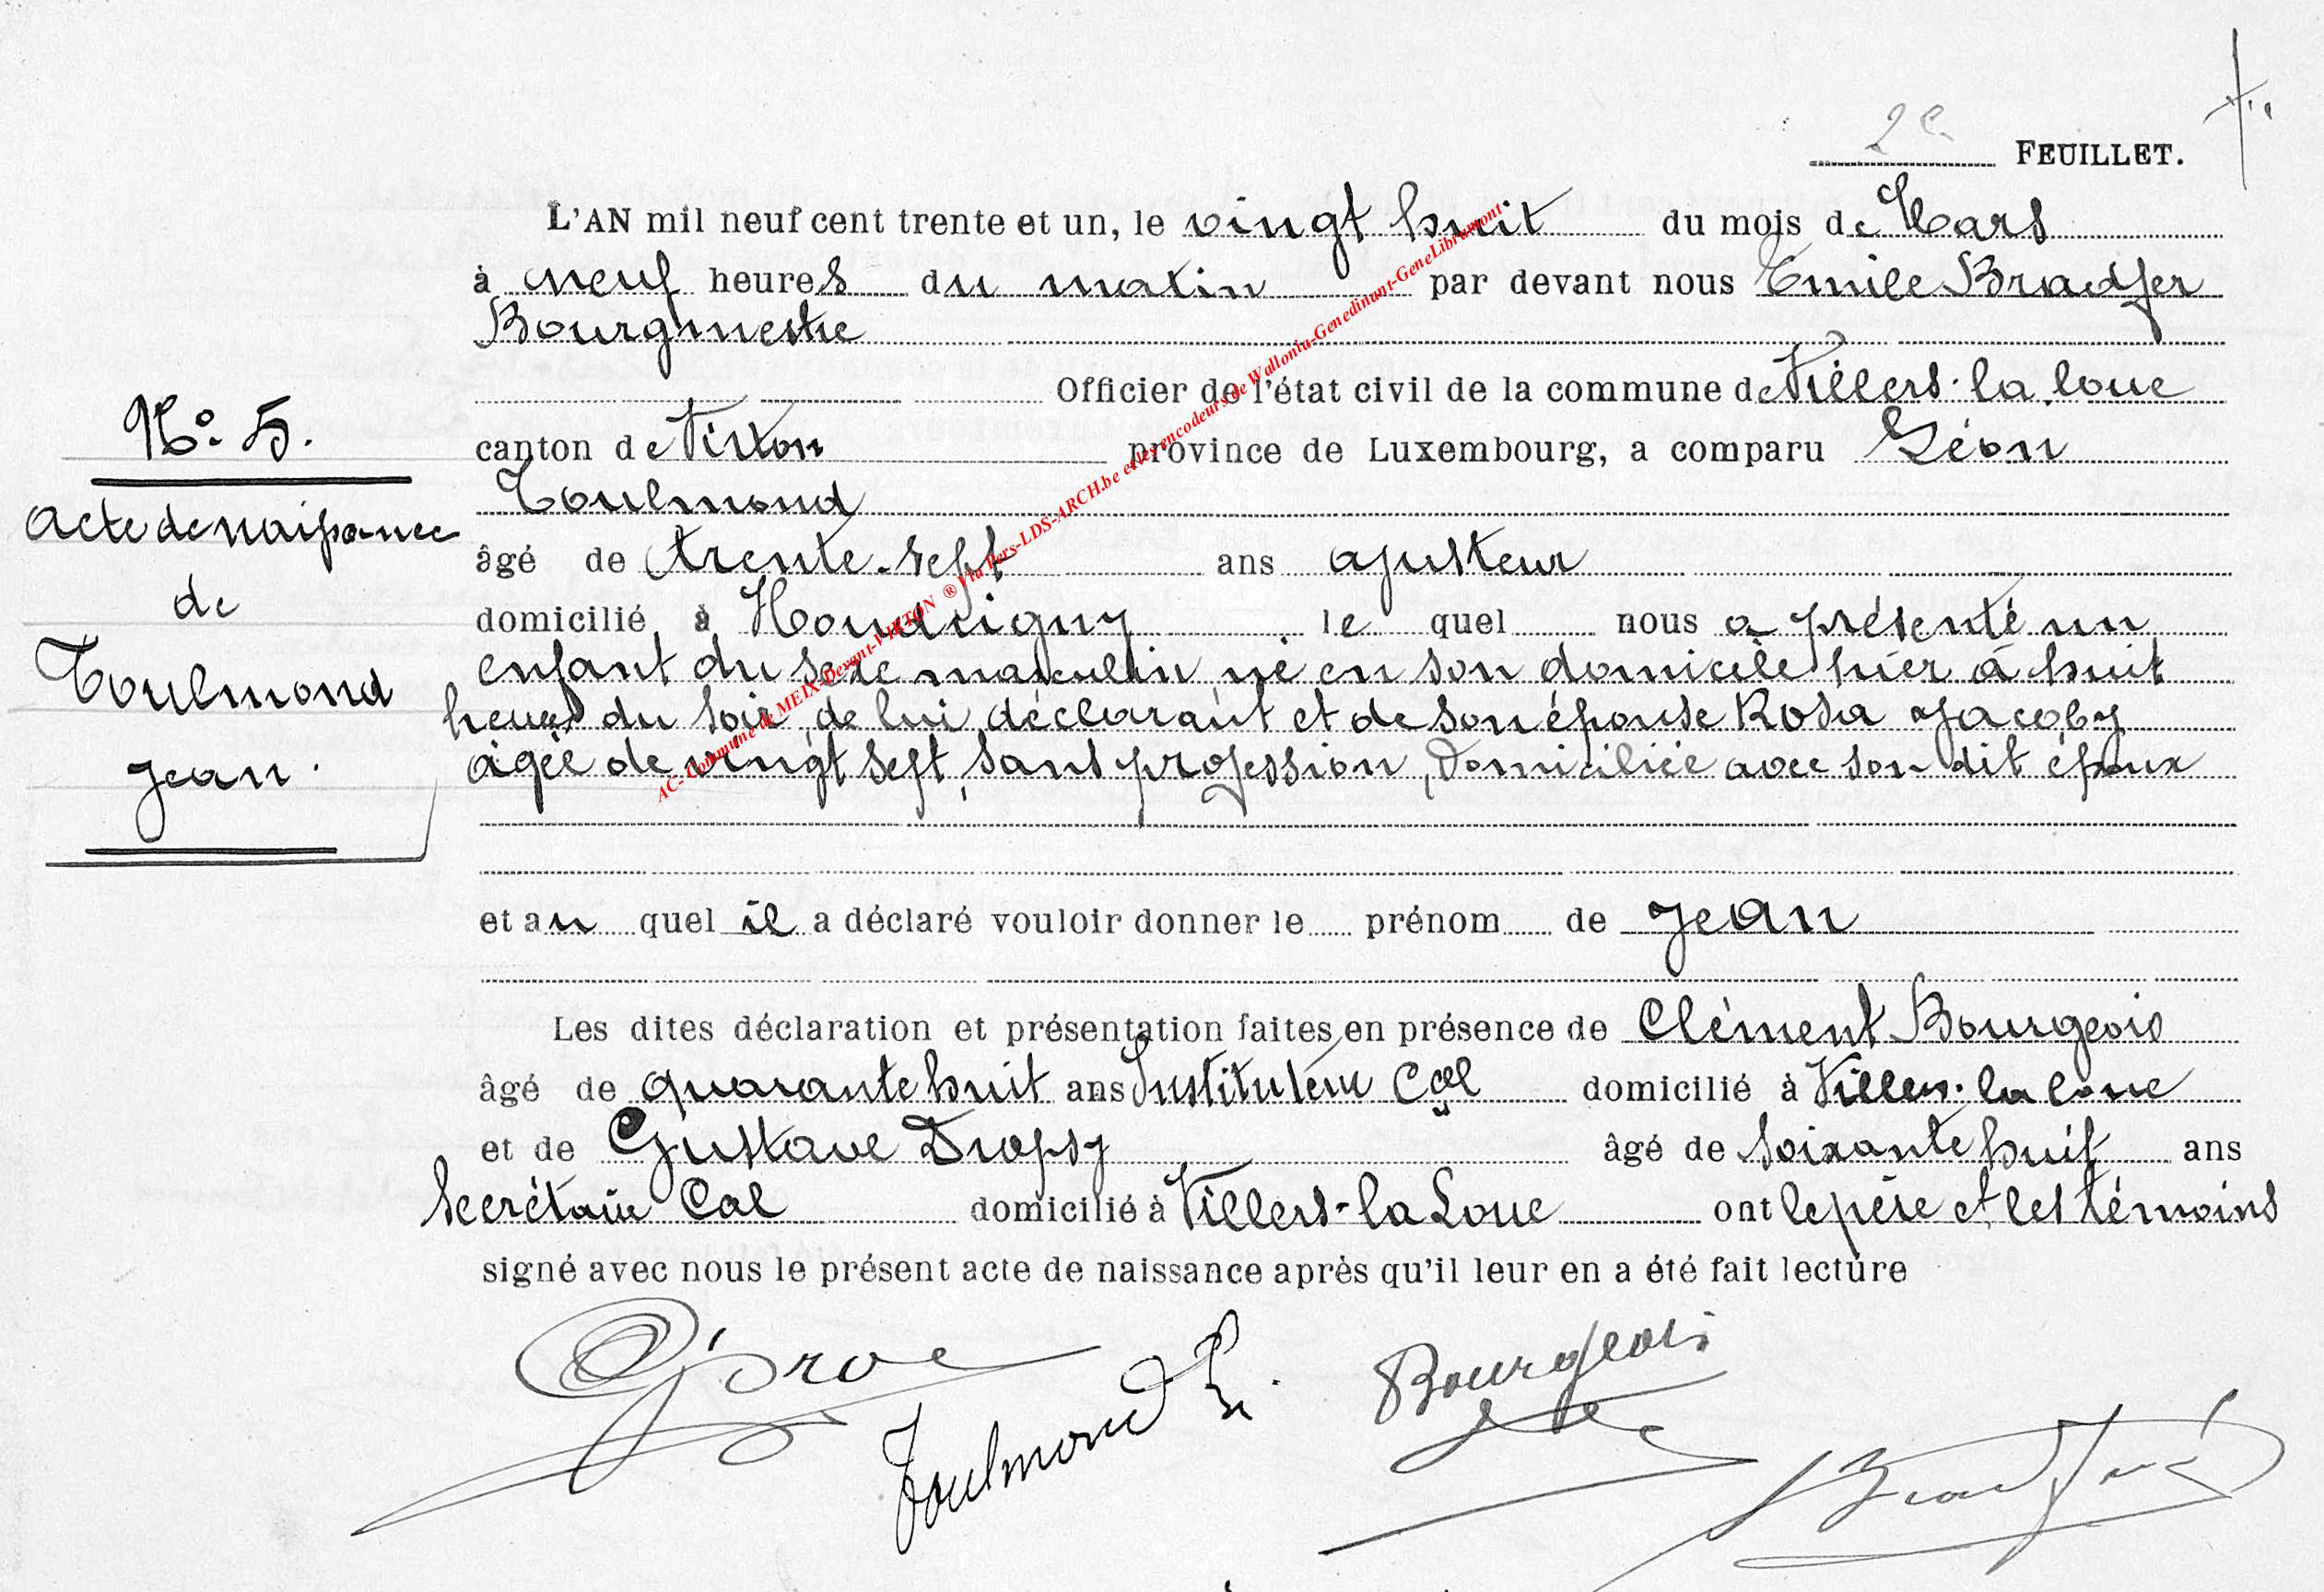 2e FEUILLET.
L'AN mil neuf cent trente et un, le vingt huit du mois de Mars
à neuf heures du matin par devant nous Emile Bradfer
Bourgmestre
Officier de l'état civil de la commune de Villers-la-loue
canton de Virton province de Luxembourg, a comparu Léon
Toulmond
âgé de trente-sept ans ajusteur
domicilié à Houdrigny, le quel nous a présenté un
enfant du sexe masculin, né en son domicile hier à huit
heures du soir, de lui déclarant et de son épouse Rosa Jacoby
âgée de vingt sept, sans profession, domiciliée avec son dit époux
et au quel il a déclaré vouloir donner le prénom de Jean
Les dites déclaration et présentation faites en présence de Clément Bourgeois
âgé de quarante huit ans Instituteur Cal domicilié à Villers-la-loue
et de Gustave Dropsy âgé de soixante huit ans
Secrétaire Cal domicilié à Villers-la Loue ont le père et les témoins
signé avec nous le présent acte de naissance après qu'il leur en a été fait lecture
Toulmond L. Bourgeois
Bradfer
No. 5.
Acte de naissance
de
Toulmond
Jean.
AC- Commune de MEIX-Devant-VIRTON ® Via Pers-LDS-ARCH.be et les encodeurs de Wallonia-Genedinant-GeneLibramont